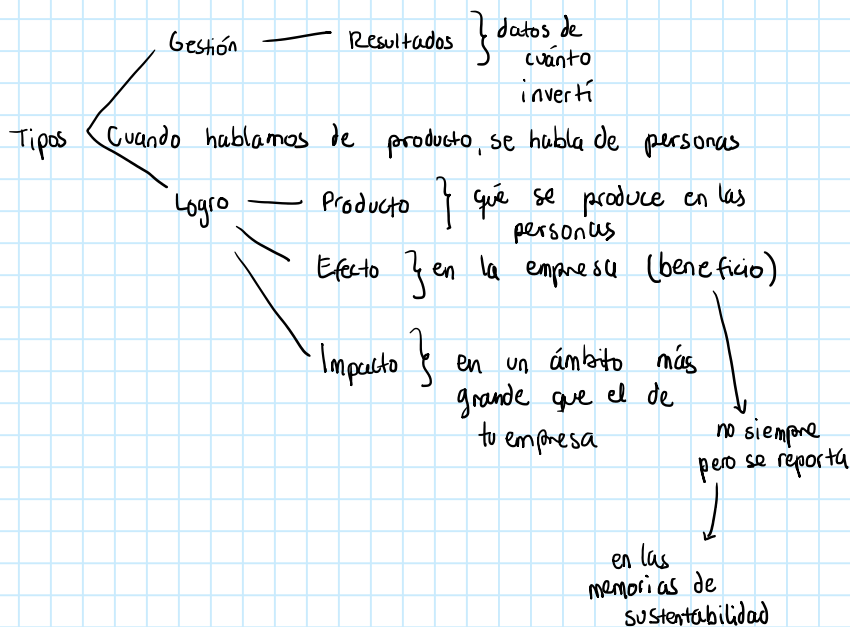 Gestión Resultados } datos de
cuánto
invertí
Tipos Cuando hablamos de producto, se habla de personas
Logro Producto } qué se produce en las
personas
Efecto } en la empresa (beneficio)
Impacto } en un ámbito más
grande que el de
tu empresa
no siempre
pero se reporta
en las
memorias de
sustentabilidad